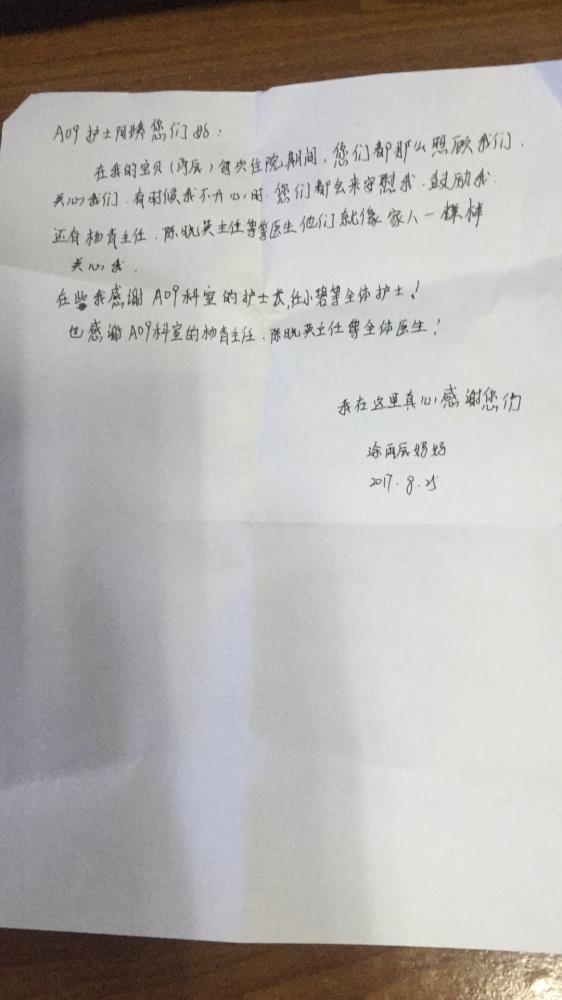 A09护士阿姨您们好:
在我的宝贝(丙辰)每次住院期间,您们都那么照顾我们.
关心我们.有时候我不开心时.您们都会来安慰我.鼓励我.
还有杨青主任.陈晓英主任等等医生他们就像家人一样
关心我.
在些我感谢A09科室的护士长,任小碧等全体护士!
也感谢A09科室的杨青主任.陈晓英主任等全体医生!
我在这里真心感谢您们
涂丙辰妈妈
2017.8.25